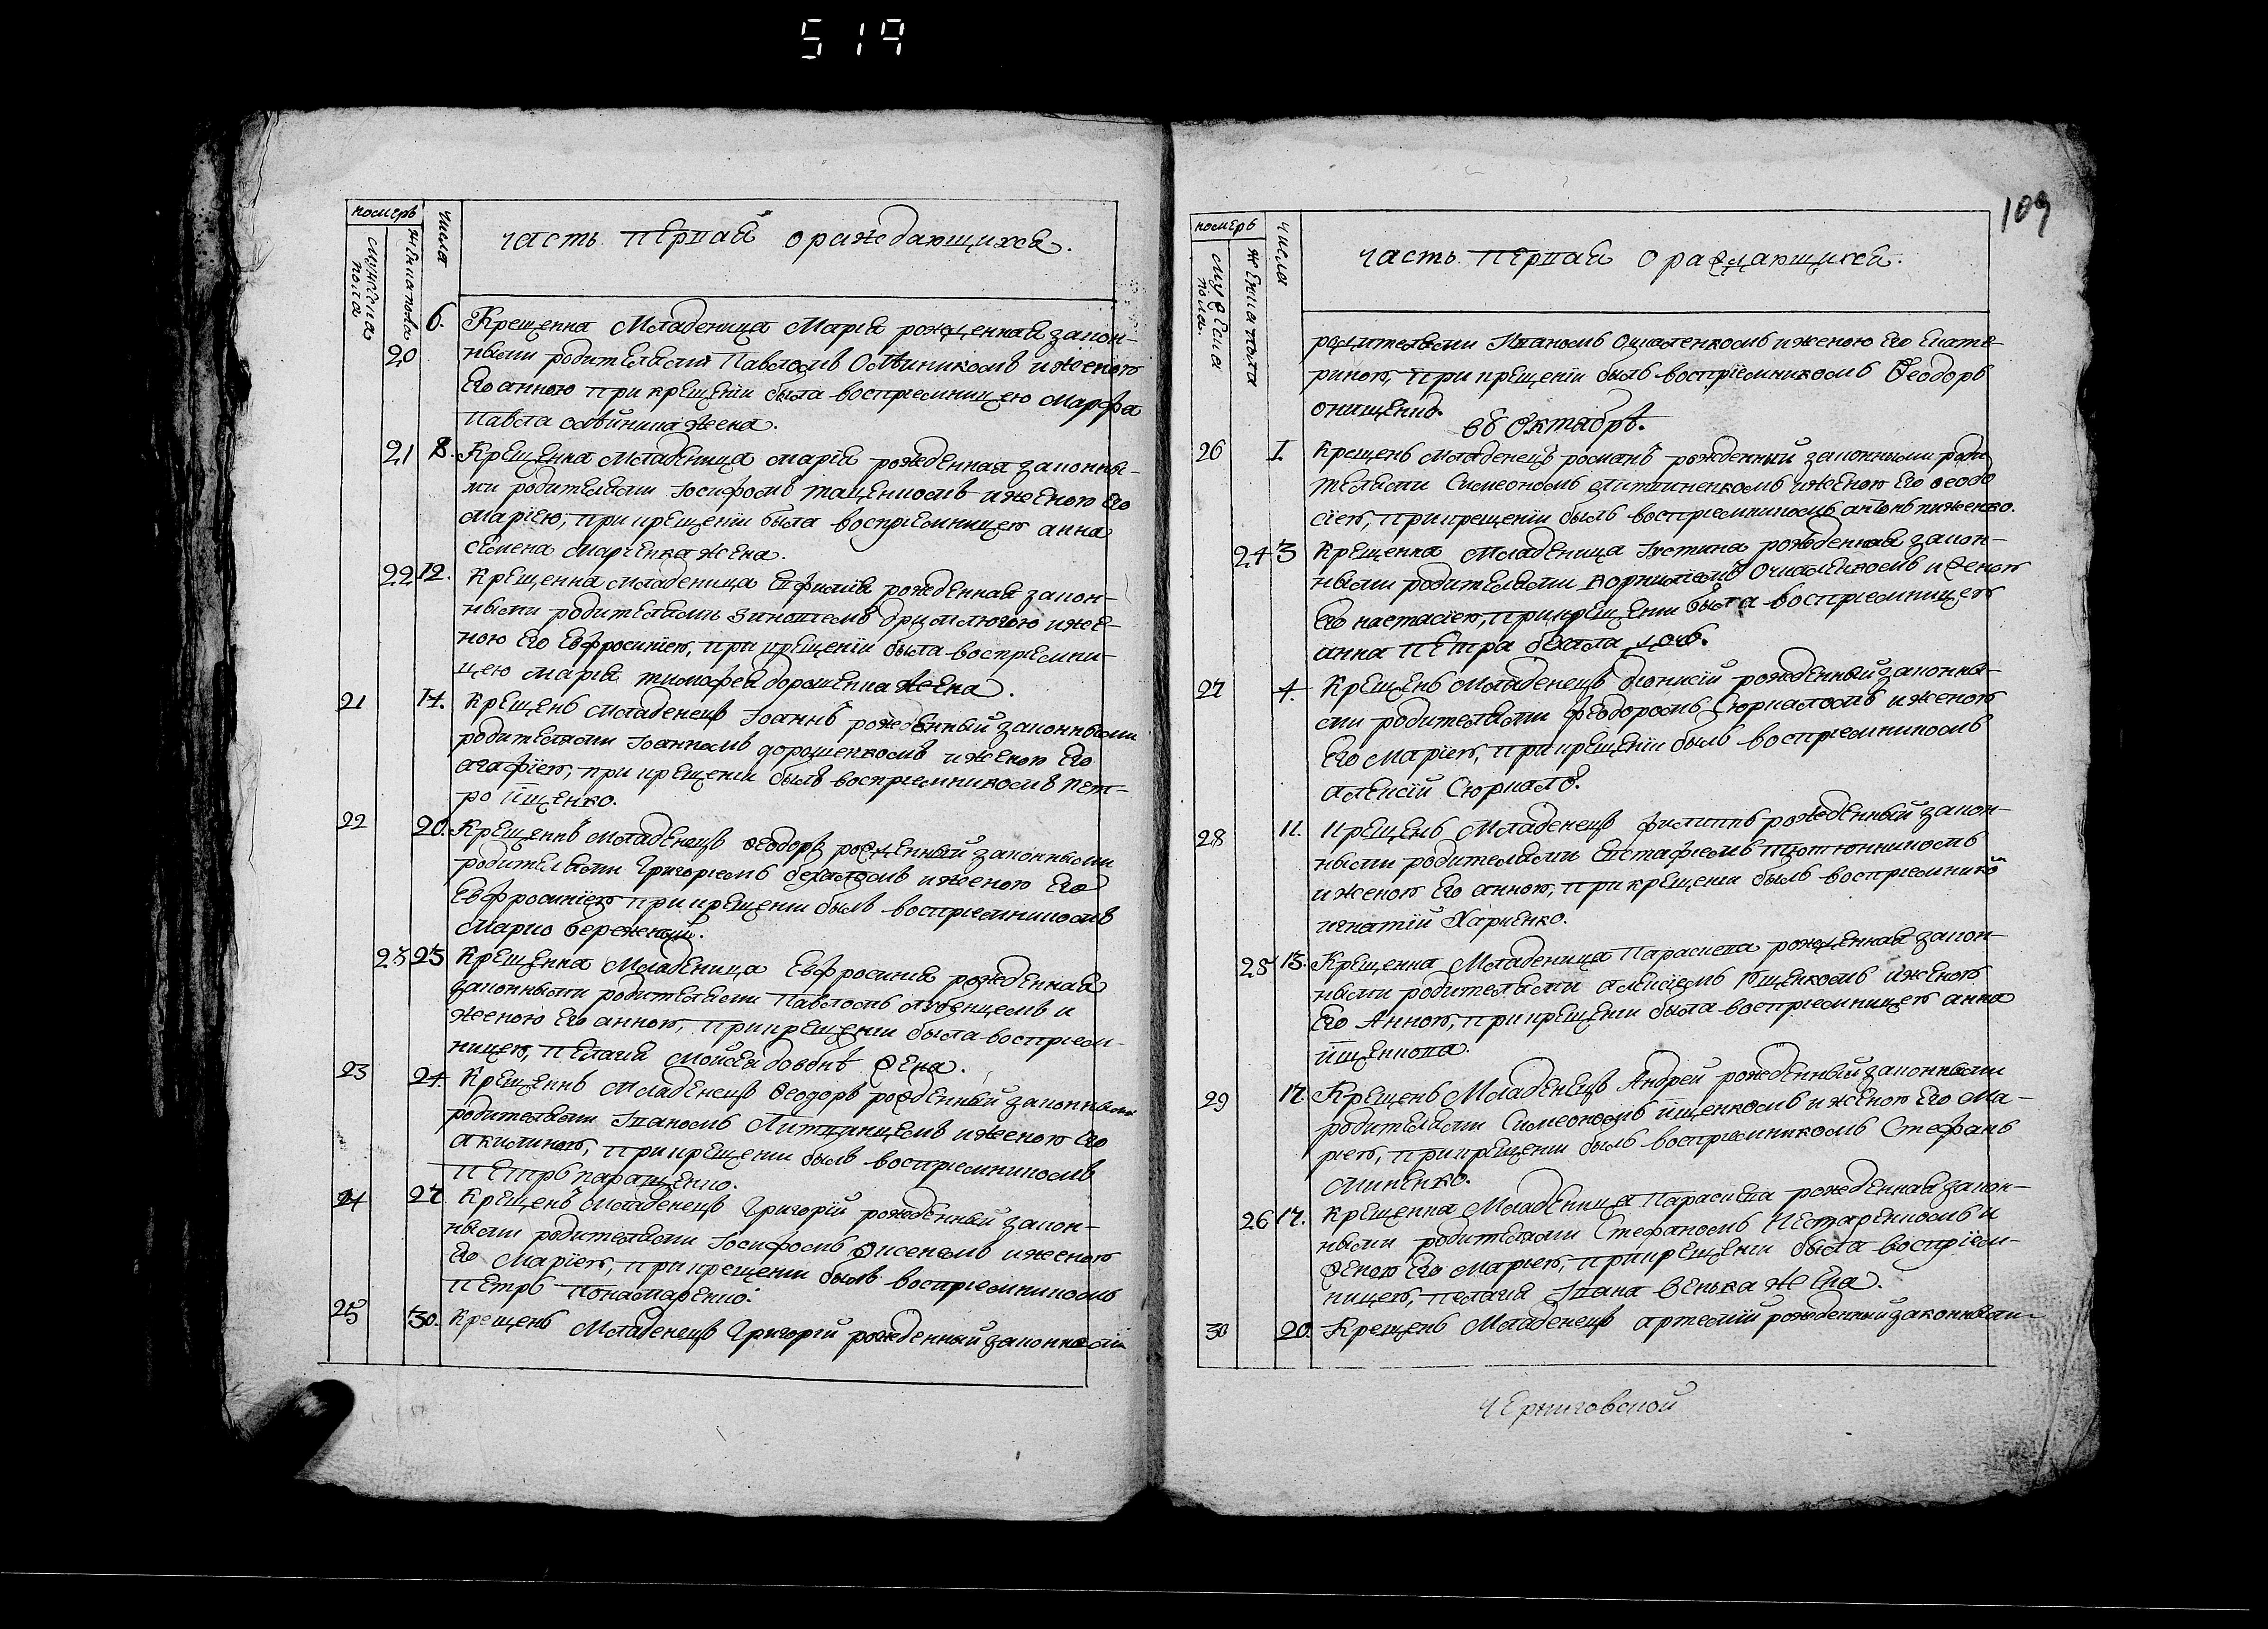 519
номеръ
мужеска пола
женска пола
числа
часть первая о раждающихся.
20 6. Крещенна Младеница Марія рожденная закон-
ными родителями Павломъ и женою
Его анною при крещеніи была воспріемницею марфа
Павла жена.
21 8. Крещенна младеница марія рожденная законны-
ми родителями Іосифомъ и женою Его
маріею, при крещеніи была воспріемницею анна
семена марченка жена.
22 12. Крещенна младеница Евфимія рожденная закон-
ными родителями зиновіемъ и же-
ною Его Евфросиніею, при крещеніи была воспріемни-
цею марія тимофея дорошенка жена.
21 14. Крещенъ младенецъ Іоаннъ рожденный законными
родителями Іоанномъ дорошенкомъ и женою Его
агафіею, при крещеніи былъ воспріемникомъ пет-
ро ищенко.
22 20. Крещеннъ младенецъ ѳеодоръ рожденный законными
родителями Григоріемъ и женою Его
Евфросиніею при крещеніи былъ воспріемникомъ
Марко
23 23 Крещенна Младеница Евфросинія рожденная
законными родителями Павломъ и
женою Его анною, при крещеніи была воспріем-
ницею, пелагия Мойсея жена.
23 24 Крещеннъ Младенецъ Ѳеодоръ рожденный законными
родителями Иваномъ Литвинцемъ и женою Его
акилиною, при крещеніи былъ воспріемникомъ
петръ паращенко.
24 27 Крещенъ младенецъ Григорій рожденный закон-
ными родителями Іосифомъ и женою
Его Маріею, при крещеніи былъ воспріемникомъ
петръ понамаренко.
25 30. Крещенъ Младенецъ Григорій рожденный законными
109
номеръ
мужеска пола.
женска пола
числа
часть первая о раждающихся.
родителями Иваномъ и женою Его Екате-
риною, при крещеніи былъ воспріемникомъ Ѳеодоръ
онищенко.
въ Октябрѣ.
26 I. Крещенъ младенецъ романъ рожденный законными роди
телями Симеономъ литвиненкомъ и женою Его ѳеодо
сіею, при крещеніи былъ воспріемникомъ антонъ
24 3 Крещенна Младеница Іустина рожденная закон-
ными родителями корниліемъ и женою
Его настасіею, при крещеніи была воспріемницею
анна петра бехала дочь.
27 4 Крещенъ Младенецъ діонисій рожденный законны-
ми родителями феодоромъ Сюркаломъ и женою
Его маріею, при крещеніи былъ воспріемникомъ
алексій Сюркало.
28 11. Крещенъ Младенецъ филиппъ рожденный закон-
ными родителями Евстафіемъ тютюнникомъ
и женою Его анною, при крещеніи былъ воспріемникомъ
игнатій Харченко.
25 13. Крещенна Младеница Параскева рожденная закон-
ными родителями алексіемъ Ющенкомъ и женою
Его Анною, при крещеніи была воспріемницею анна
ищенкова.
29 17. Крещенъ Младенецъ Андрей рожденный законными
родителями Симеономъ ищенкомъ и женою Его Ма-
ріею, при крещеніи былъ воспріемникомъ Стефанъ
миненко.
26 17. Крещенна Младеница Параскева рожденная закон-
ными родителями Стефаномъ Нестеренкомъ и
женою Его марьею, при крещеніи была воспріем-
ницею, пелагия Ивана венька жена.
30 20. Крещенъ Младенецъ артемій рожденный законными
Черниговской